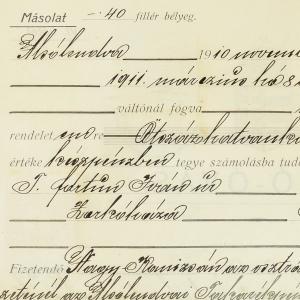 Másolat -·40 fillér bélyeg.
Alsólendva 1910 novem
1911. márczius hó 8
váltónál fogva
rendelet
értéke készpénzben tegye számolásba tud
T. Iván úr
Zorkóháza
Fizetendő Nagy-Kanizsán az osztrá
az Alsólendvai Takarék